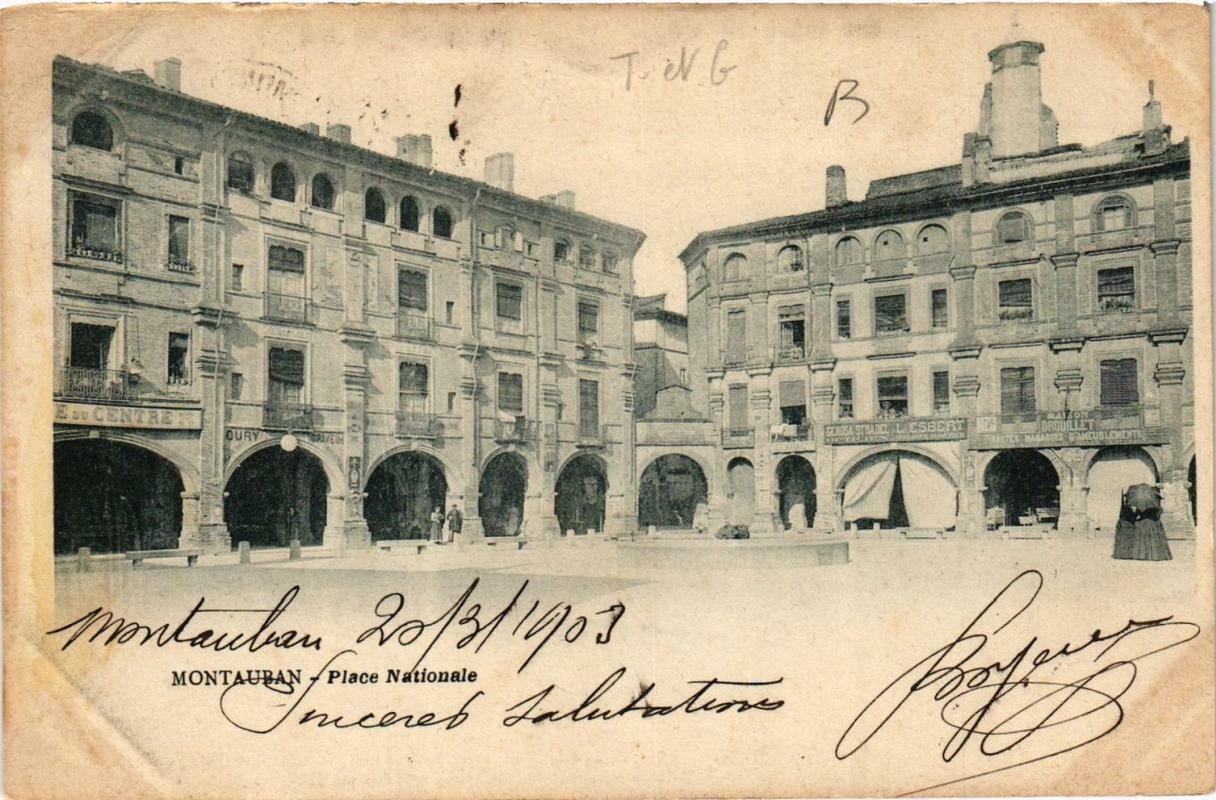 T. et G
B
E DU CENTRE
OURY GRAVEUR
L. ESBERT
MAISON
DROUILLET
D'AMEUBLEMENTS
Montauban 20/3/1903
MONTAUBAN - Place Nationale
Sincères salutations